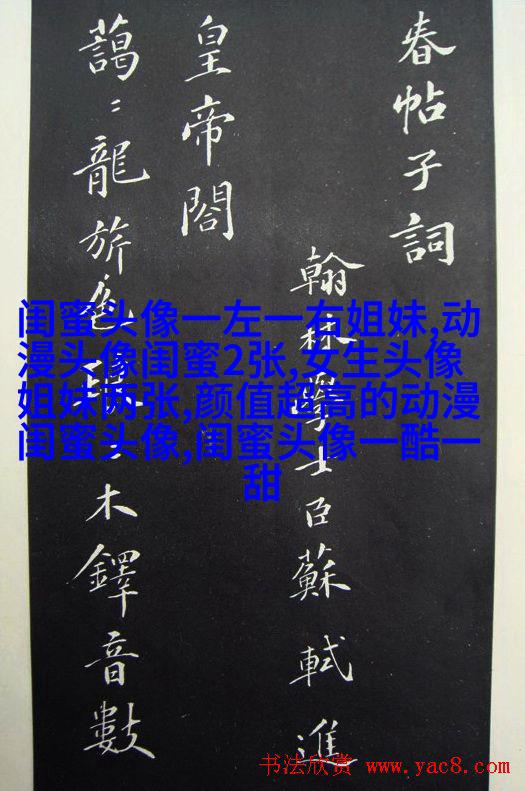 春帖子詞
翰林學士臣蘇軾進
皇帝閤
藹〻龍旂色〻木鐸音數
闺蜜头像一左一右姐妹,动
漫头像闺蜜2张,女生头像
姐妹两张,颜值超高的动漫
闺蜜头像,闺蜜头像一酷一
甜
书法欣赏 www.yac8.com